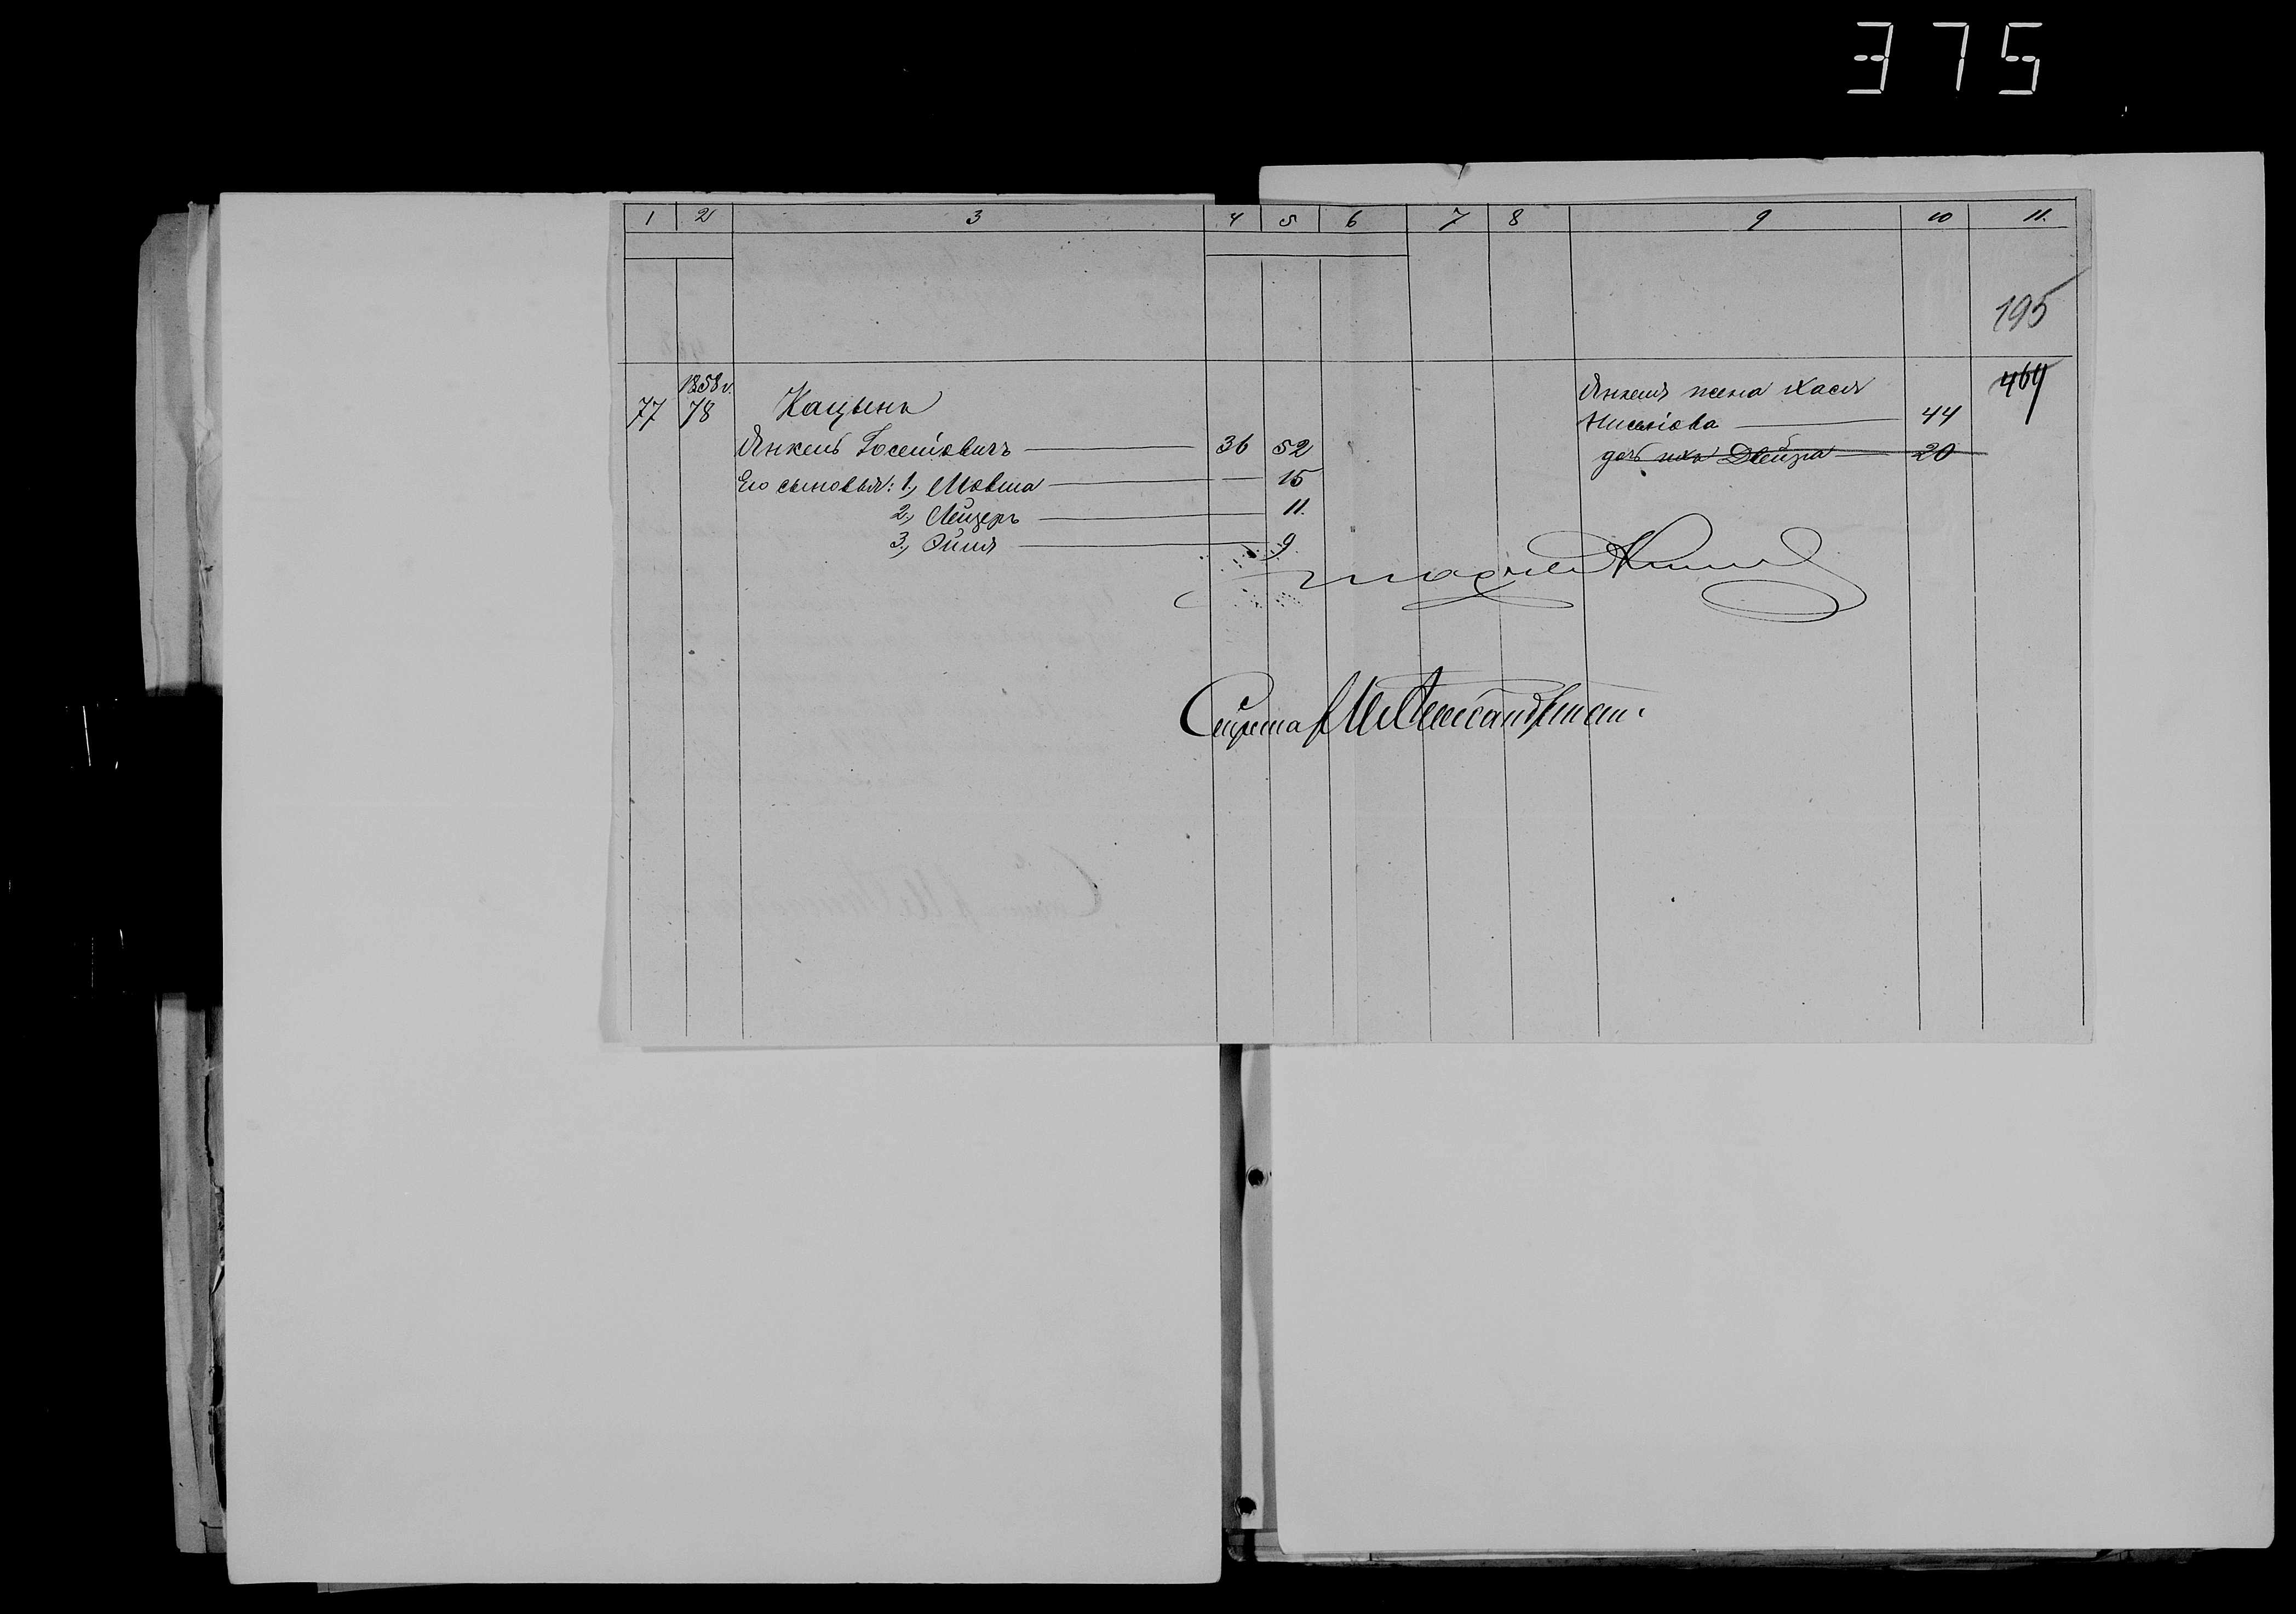 375
1 2 3 4 5 6 7 8 9 10 11.
195
469
1858 г.
77 78 Кацынъ
Янкель Іоселіовичъ 36 52
Его сыновья: 1., Мовша 15
2., Лейзеръ 11.
3., Эйля 9
Янкеля жена Хася
Ниселіова 44
дочь ихъ Двейра 20